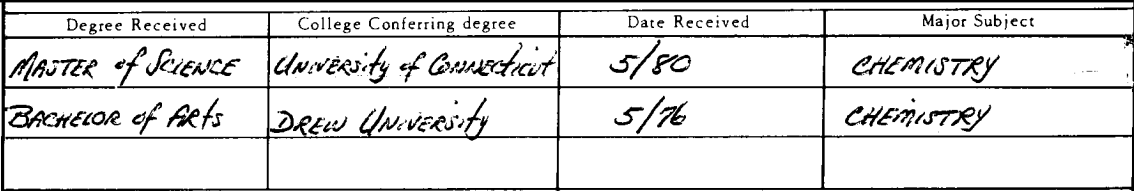 Degree Received College Conferring degree Date Received Major Subject
MASTER of SCIENCE University of Connecticut 5/80 CHEMISTRY
BACHELOR of ARts DREW University 5/76 CHEMISTRY